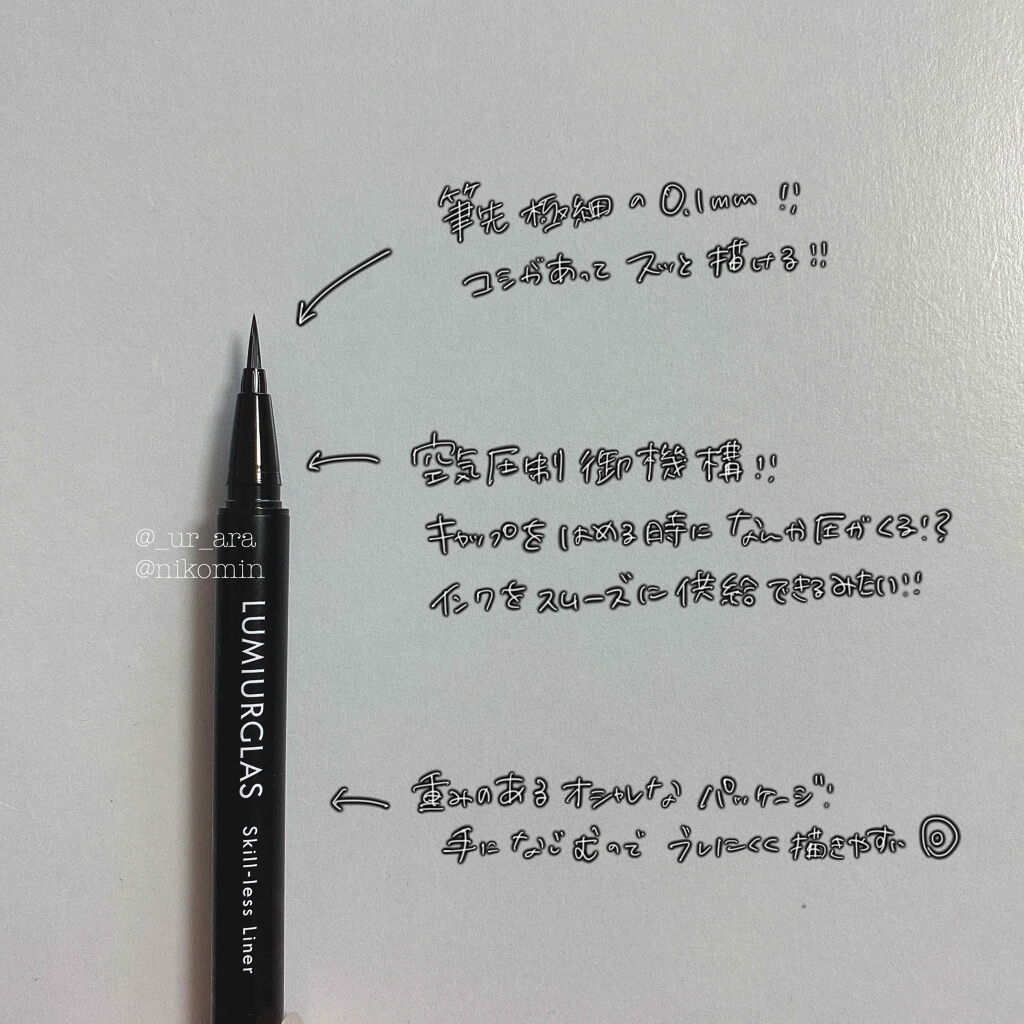 筆先極細の0.1mm!!
コシがあってズッと描ける!!
空気圧制御機構!!
キャップをはめる時になんか圧がくる!?
インクをスムーズに供給できるみたい!!
@_ur_ara
@nikomin
LUMIURGLAS Skill-less Liner
重みのあるオシャレなパッケージ!
手になじむのでブレにくく描きやすい◎